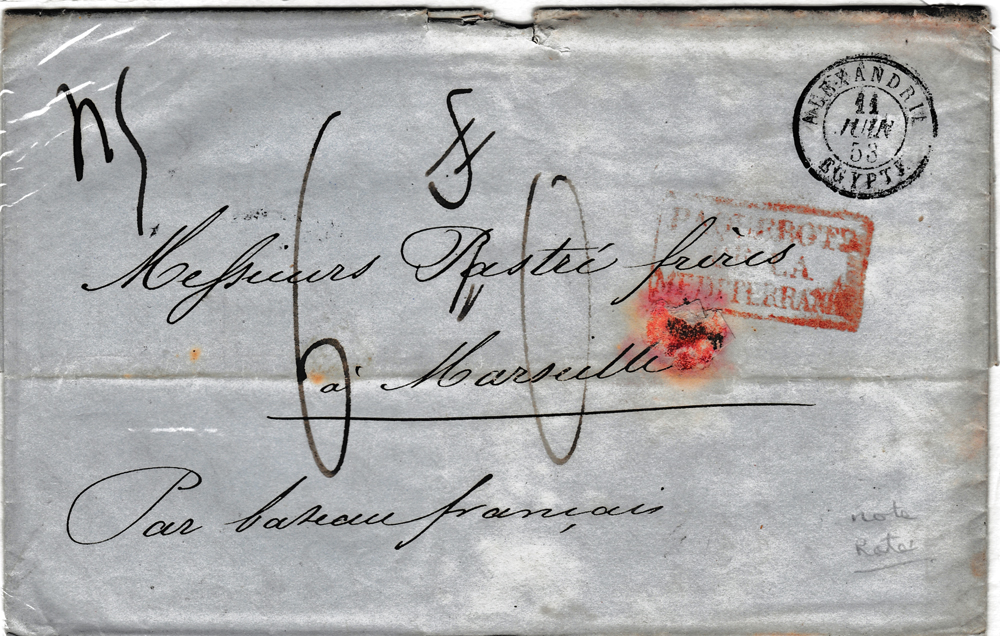 ALEXANDRIE
11
JUIN
53
EGYPTE
PAQUEBOTS
DE LA
MEDITERRANÉE
Messieurs Pastré frères
à Marseille
60
Par bateau français
note
Rate